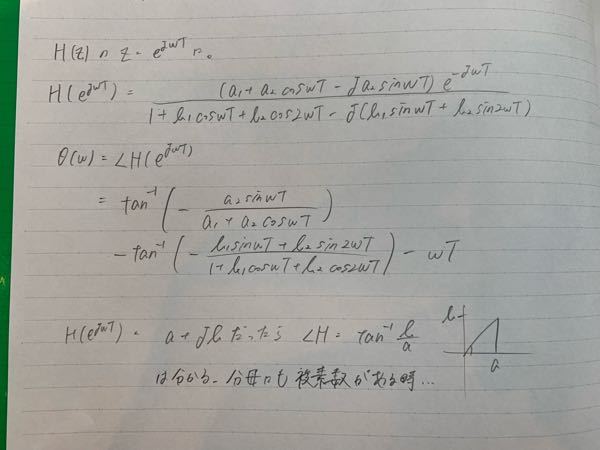 H(z) に z = e^{jωT} に。
H(e^{jωT}) = \frac{(a₁ + a₂ cos ωT - j a₂ sin ωT) e^{-jωT}}{1 + b₁ cos ωT + b₂ cos 2ωT - j(b₁ sin ωT + b₂ sin 2ωT)}
θ(ω) = ∠H(e^{jωT})
= tan⁻¹ ( - \frac{a₂ sin ωT}{a₁ + a₂ cos ωT} )
- tan⁻¹ ( - \frac{b₁ sin ωT + b₂ sin 2ωT}{1 + b₁ cos ωT + b₂ cos 2ωT} ) - ωT
H(e^{jωT}) = a + jb だったら ∠H = tan⁻¹ \frac{b}{a}
b
a
は分かる、分母にも複素数がある時...